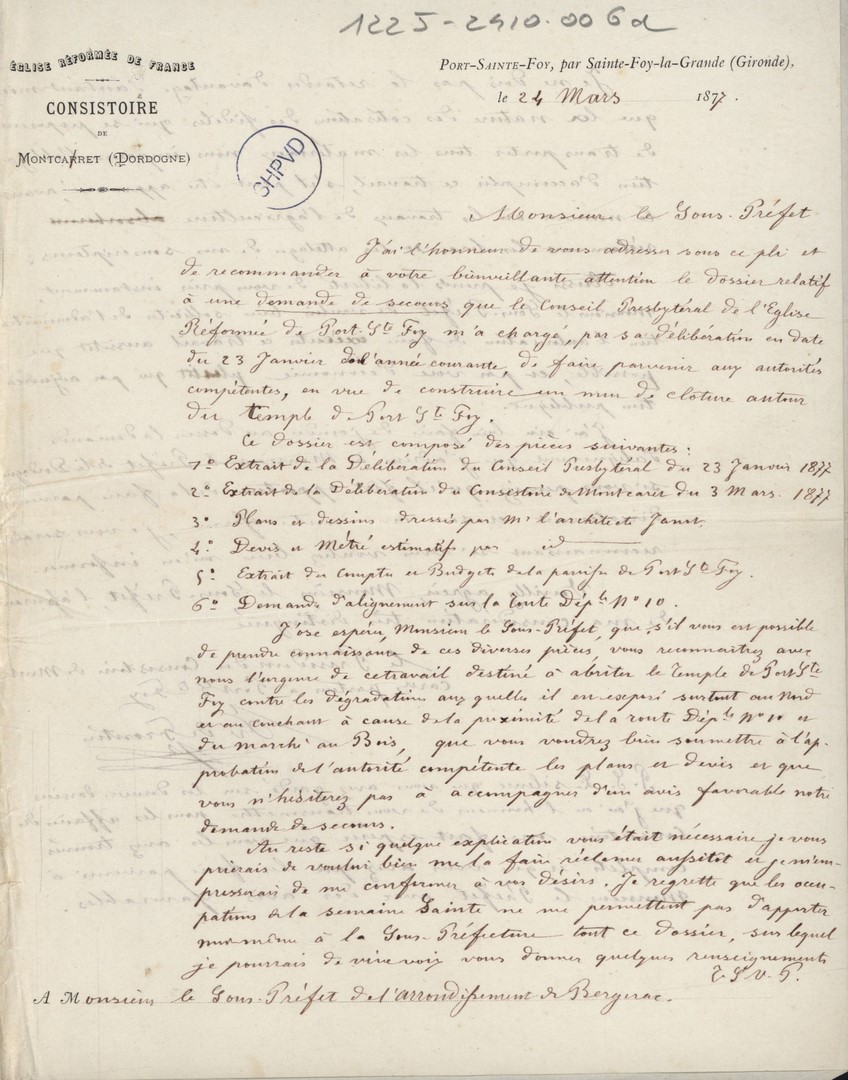 1225-2410.006d
ÉGLISE RÉFORMÉE DE FRANCE
CONSISTOIRE
DE
MONTCARRET (DORDOGNE)
PORT-SAINTE-FOY, par Sainte-Foy-la-Grande (Gironde),
le 24 Mars 1877.
SHPVD
Monsieur le Sous-Préfet
J'ai l'honneur de vous adresser sous ce pli et
de recommander à votre bienveillante attention le dossier relatif
à une demande de secours que le Conseil Presbytéral de l'Eglise
Réformée de Port-Ste Foy m'a chargé, par sa délibération en date
du 23 Janvier de l'année courante, de faire parvenir aux autorités
compétentes, en vue de construire un mur de cloture autour
du temple de Port Ste Foy.
Ce dossier est composé des pièces suivantes :
1º Extrait de la Délibération du Conseil Presbytéral du 23 Janvier 1877
2º Extrait de la Délibération du Consistoire de Montcaret du 3 Mars. 1877
3º Plans et dessins dressés par Mr l'architecte Janot.
4º Devis et Métré estimatifs par id
5º Extrait des Comptes et Budgets de la paroisse de Port Ste Foy.
6º Demande d'alignement sur la route Dép.le Nº 10.
J'ose espérer, Monsieur le Sous-Préfet, que, s'il vous est possible
de prendre connaissance de ces diverses pièces, vous reconnaitrez avec
nous l'urgence de ce travail destiné à abriter le Temple de Port Ste
Foy contre les dégradations aux quelles il est exposé surtout au Nord
et au Couchant à cause de la proximité de la route Dép.le Nº 10 et
du marché au Bois, que vous voudrez bien soumettre à l'ap-
probation de l'autorité compétente les plans et devis et que
vous n'hésiterez pas à accompagner d'un avis favorable notre
demande de secours.
Au reste si quelque explication vous était nécessaire je vous
prierais de vouloir bien me la faire réclamer aussitot et je m'em-
presserais de me conformer à vos désirs. Je regrette que les occu-
pations de la semaine Sainte ne me permettent pas d'apporter
moi-même à la Sous-Préfecture tout ce dossier, sur lequel
je pourrais de vive voix vous donner quelques renseignements
T.S.V.P.
A Monsieur le Sous-Préfet de l'arrondissement de Bergerac.